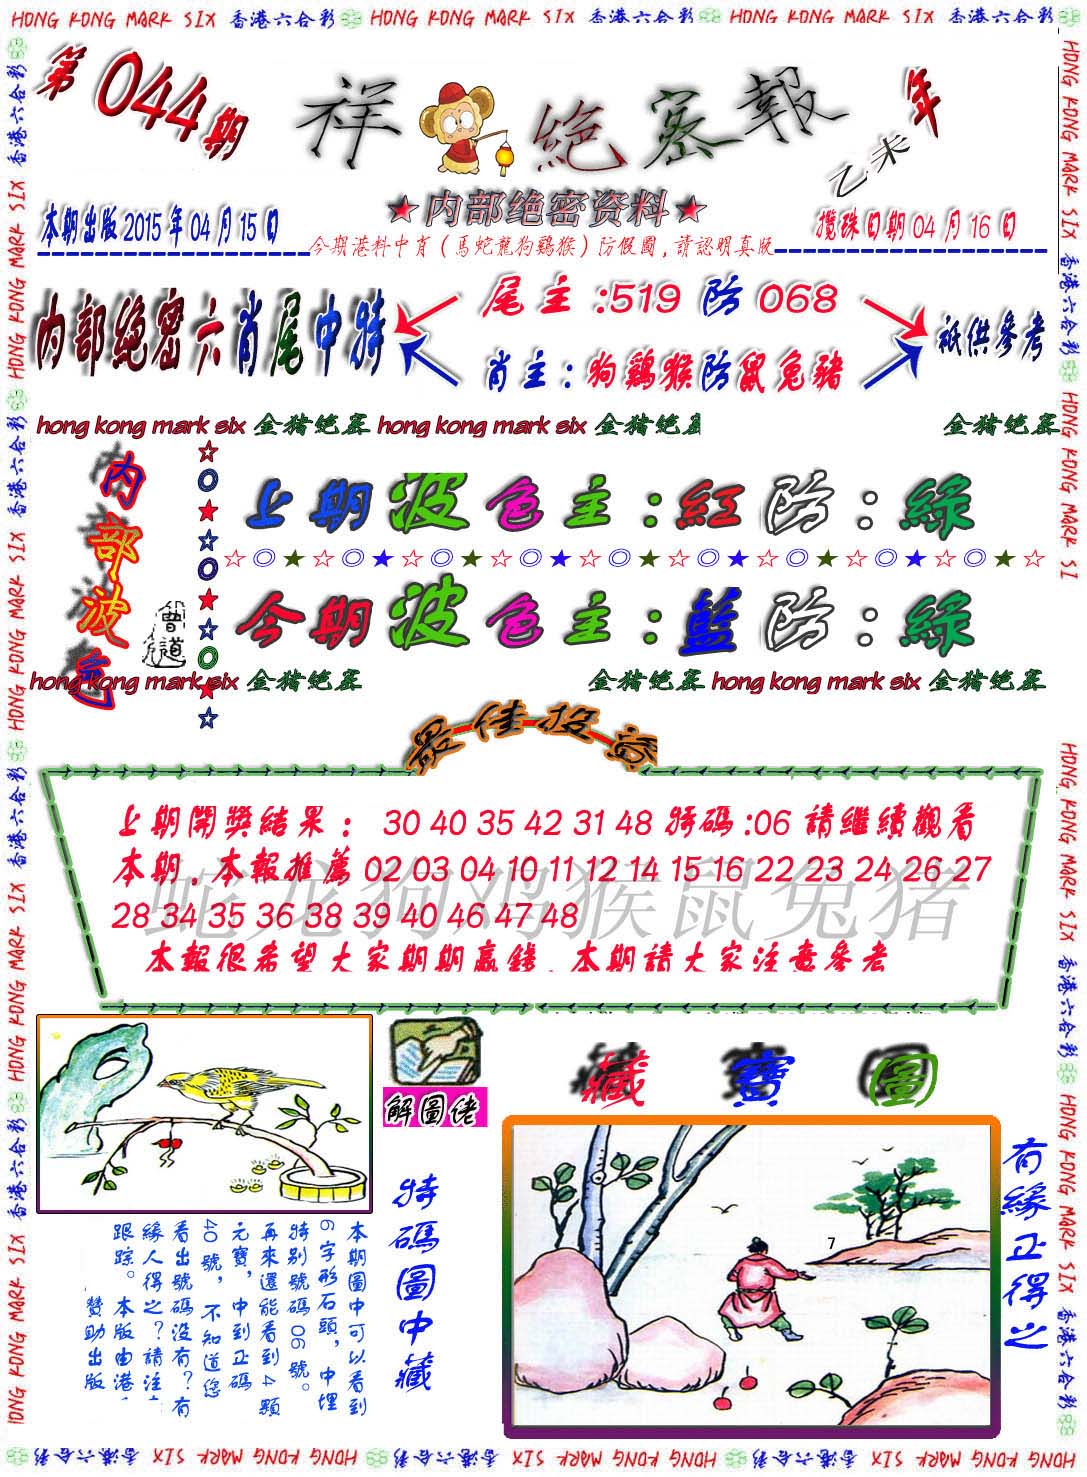 HONG KONG MARK SIX 香港六合彩 HONG KONG MARK SIX 香港六合彩 HONG KONG MARK SIX 香港六合彩
第044期
祥 絕密報
乙未年
★内部绝密资料★
本期出版2015年04月15日
攪珠日期04月16日
今期港料中肖(馬蛇龍狗鷄猴)防假圖,請認明真版
内部绝密六肖尾中特
尾主:519防068
肖主:狗鷄猴防鼠兔豬
祇供參考
hong kong mark six 金猪绝密 hong kong mark six 金猪绝密
金猪绝密
内部波色
曾道人
上期波色主:紅防:綠
☆◎★☆◎★☆◎★☆◎★☆◎★☆◎★☆◎★☆◎★☆◎★☆
今期波色主:藍防:綠
hong kong mark six 金猪绝密
金猪绝密 hong kong mark six 金猪绝密
最佳投資
上期開獎結果: 30 40 35 42 31 48 特碼:06 請繼續觀看
本期.本報推薦 02 03 04 10 11 12 14 15 16 22 23 24 26 27
28 34 35 36 38 39 40 46 47 48
蛇龙狗鸡猴鼠兔猪
本報很希望大家期期贏錢.本期請大家注意參考
解圖佬
藏寶圖
特碼圖中藏
有緣正得之
7
本期圖中可以看到
6字形石頭,中埋
特別號碼06號。
再來還能看到4顆
元寶,中到正碼
40號,不知道您
看出號碼没有?有
緣人得之?請注意
跟踪。本版由港
贊助出版
HONG KONG MARK SIX 香港六合彩 HONG KONG MARK SIX 香港六合彩 HONG KONG MARK SIX 香港六合彩